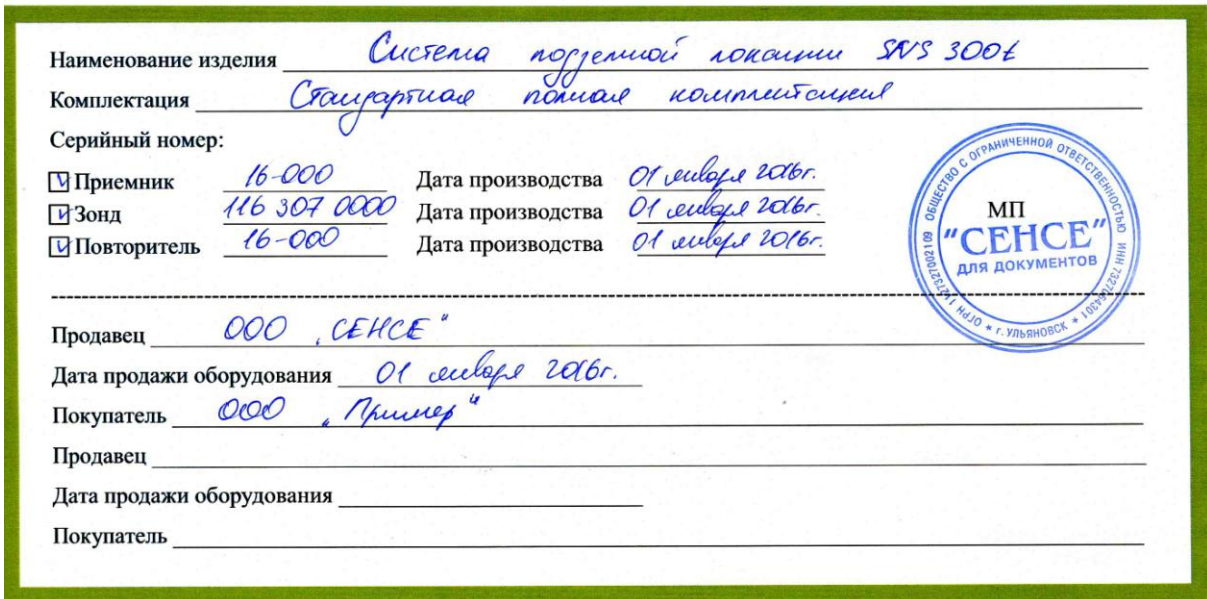 Наименование изделия Система подземной локации SNS 300t
Комплектация Стандартная полная комплектация
Серийный номер:
Приемник 16-000 Дата производства 01 января 2016г.
Зонд 116 307 0000 Дата производства 01 января 2016г.
Повторитель 16-000 Дата производства 01 января 2016г.
МП
ОБЩЕСТВО С ОГРАНИЧЕННОЙ ОТВЕТСТВЕННОСТЬЮ
"СЕНСЕ"
ДЛЯ ДОКУМЕНТОВ
* г. УЛЬЯНОВСК *
Продавец ООО „СЕНСЕ"
Дата продажи оборудования 01 января 2016г.
Покупатель ООО „Пример"
Продавец
Дата продажи оборудования
Покупатель